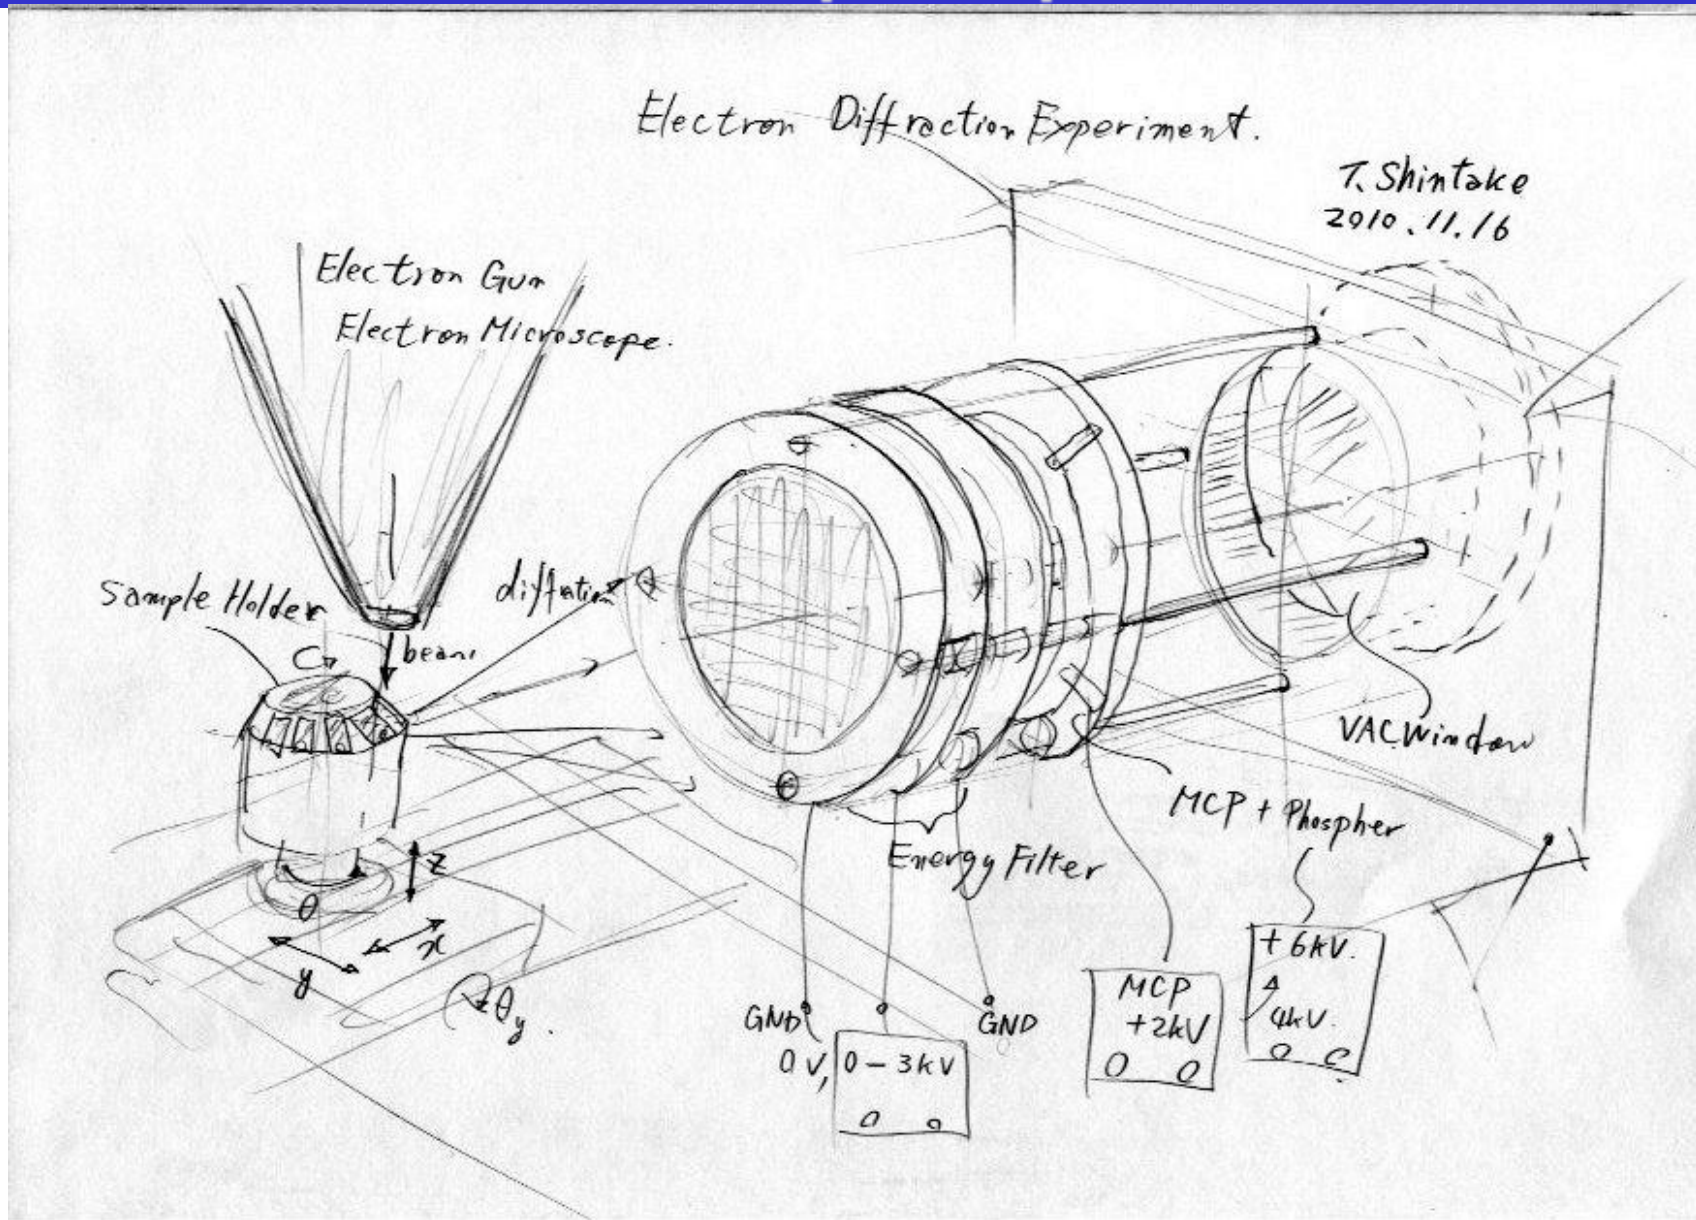 Electron Diffraction Experiment.
T. Shintake
2010.11.16
Electron Gun
Electron Microscope.
Sample Holder
diffration
beam
VAC Window
MCP + Phospher
Energy Filter
z
θ
x
y
θy.
GND
GND
0V, 0-3kV
MCP
+2kV
+6kV.
4kV.